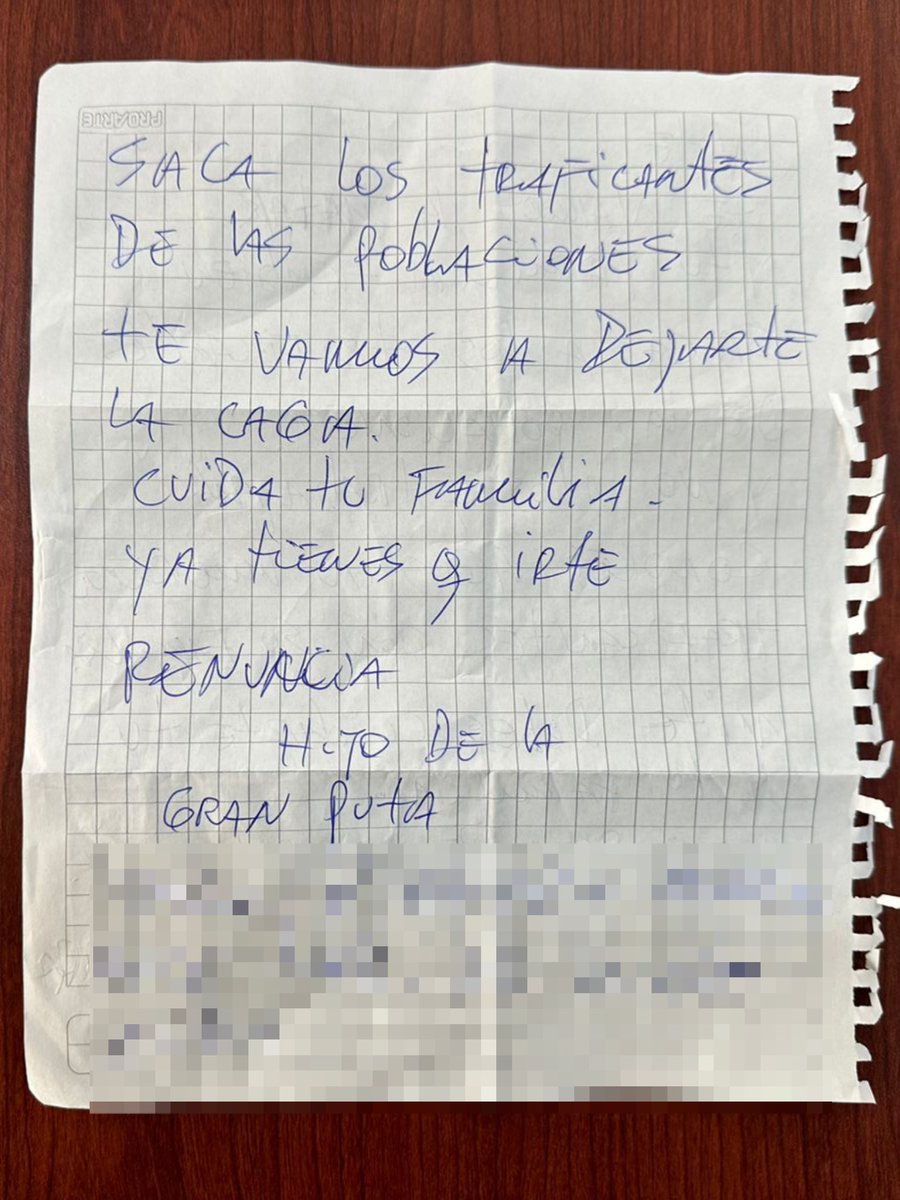 PROARTE
SACA LOS TRAFICANTES
DE LAS POBLACIONES
TE VAMOS A DEJARTE
LA CAGA.
CUIDA TU FAMILIA.
YA TIENES Q IRTE
RENUNCIA
HIJO DE LA
GRAN PUTA